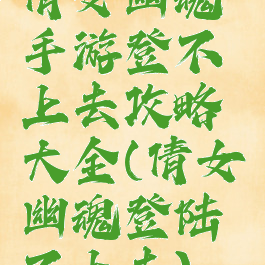 倩女幽魂
手游登不
上去攻略
大全(倩女
幽魂登陆
不上去)